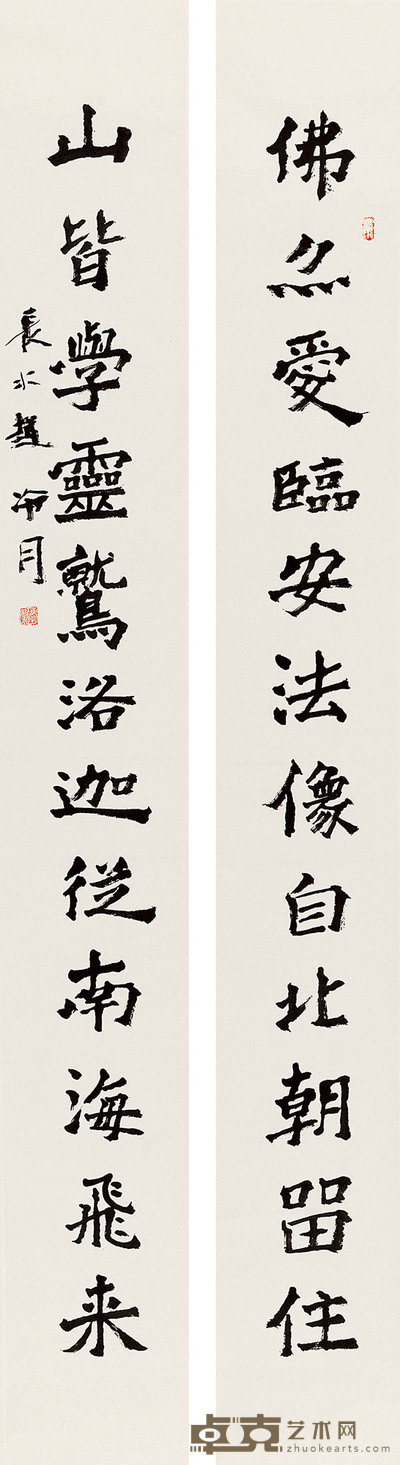 佛尒愛臨安法像自北朝畱住
山皆學靈鷲洛迦從南海飛来
長水趙冷月
卓克艺术网
www.zhuokearts.com